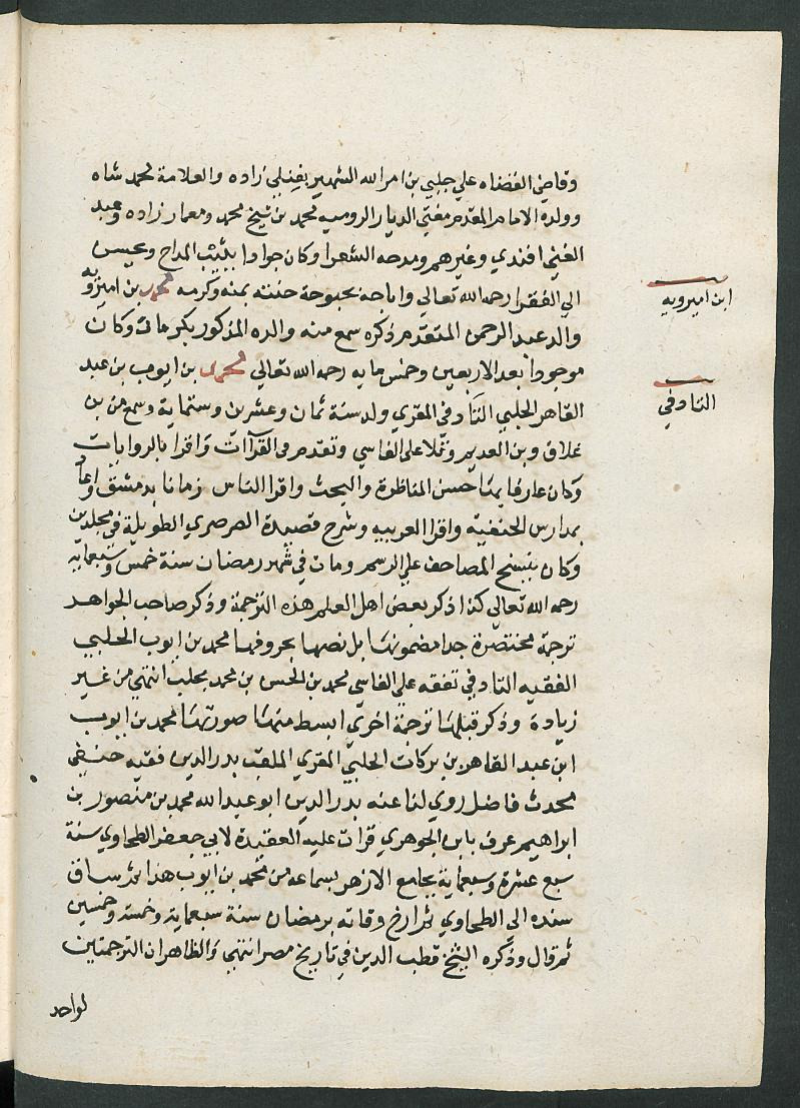 وقاضي القضاه علي جلبي بن امر الله الشهير بقنلي زاده والعلامة محمد شاه
وولده الامام المقدم مفتي الديار الروميه محمد بن شيخ محمد ومعمار زاده وعبد
الغني افندي وغيرهم ومدحه الشعرا وكان جوادا يثيب المداح ويحسن
الي الفقرا رحمه الله تعالي واباحه بحبوحة جنته بمنه وكرمه محمد بن اميرويه
والد عبد الرحمن المتقدم ذكره سمع منه والده المذكور بكرمان وكان
موجودا بعد الاربعين وخمس مايه رحمه الله تعالي محمد بن ايوب بن عبد
القاهر الحلبي التادفي المقري ولد سنة ثمان وعشرين وستماية وسمع من بن
علاق وبن العديم وتلا علي الفاسي وتقدم في القراآت واقرا بالروايات
وكان عارفا بها حسن المناظرة والبحث واقرا الناس زمانا بدمشق واعاد
بمدارس الحنفيه واقرا العربيه وشرح قصيدة الصرصري الطويلة في مجلدين
وكان ينسخ المصاحف علي الرسم ومات في شهر رمضان سنة خمس وسبعمايه
رحمه الله تعالي كذا ذكر بعض اهل العلم هذه الترجمة وذكر صاحب الجواهر
ترجمة مختصرة جدا مضمونها بل نصها بحروفها محمد بن ايوب الحلبي
الفقيه التادفي تفقه علي الفاسي محمد بن الحسن بن محمد بحلب انتهي من غير
زيادة وذكر قبلها ترجمة اخري ابسط منها صورتها محمد بن ايوب
ابن عبد القاهر بن بركات الحلبي المقري الملقب بدر الدين فقيه حنفي
محدث فاضل روي لنا عنه بدر الدين ابو عبد الله محمد بن منصور بن
ابراهيم عرف بابن الجوهري قرات عليه العقيدة لابي جعفر الطحاوي سنة
سبع عشرة وسبعماية بجامع الازهر بسماعه من محمد بن ايوب هذا ثم ساق
سنده الي الطحاوي ثم ارخ وفاته برمضان سنة سبعماية وخمسة وخمسين
ثم قال وذكره الشيخ قطب الدين في تاريخ مصر انتهي والظاهر ان الترجمتين
لواحد
ابن اميرويه
التادفي